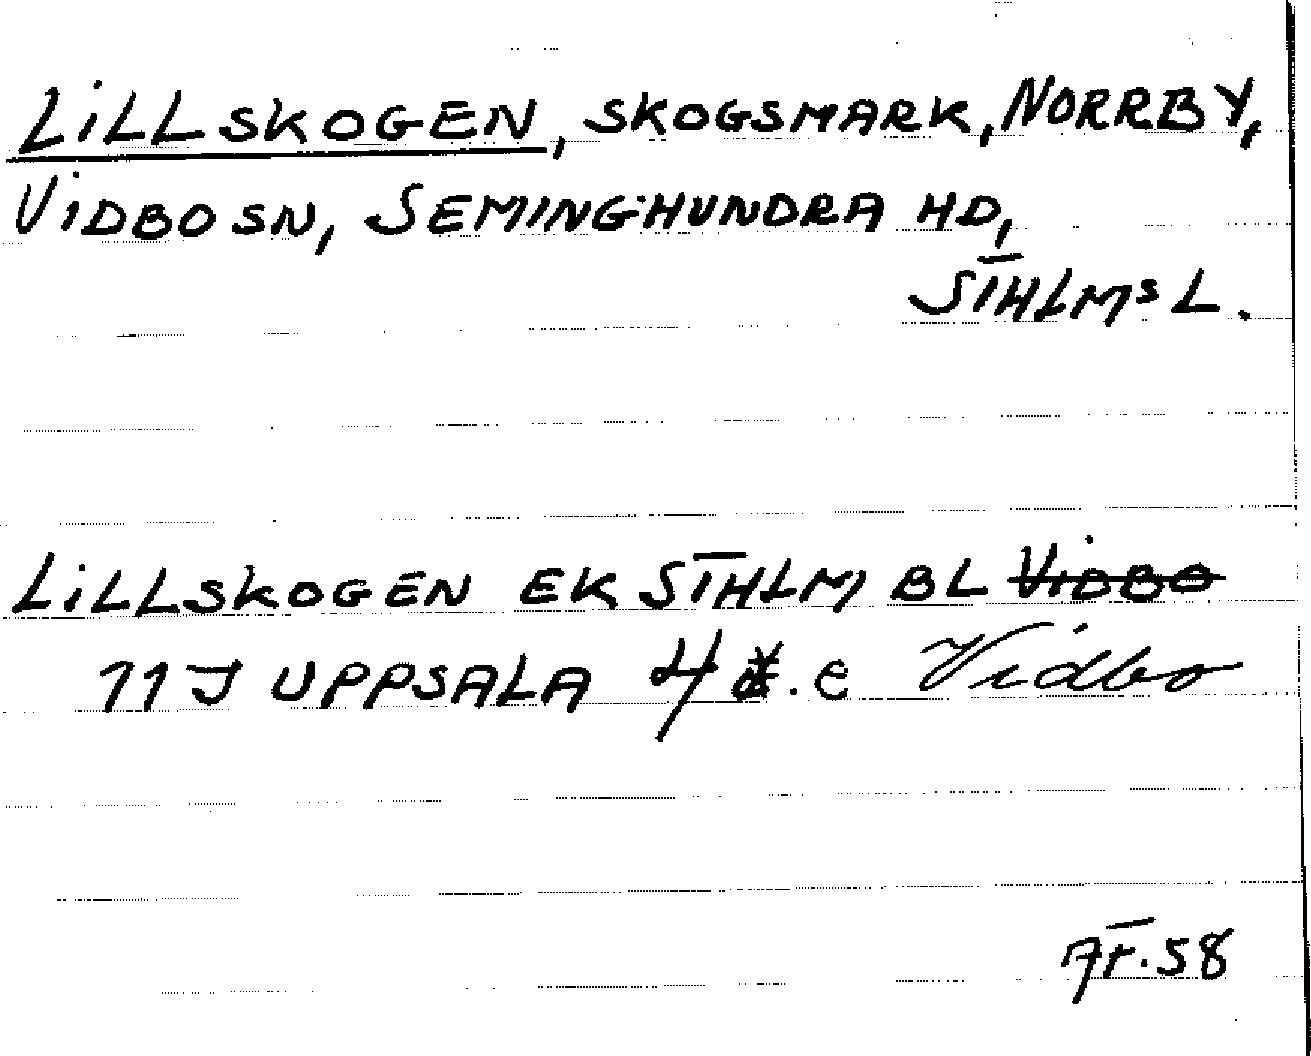 LiLLSKOGEN, SKOGSMARK, NORRBY,
ViDBO SN, SEMINGHUNDRA HD,
STHLMS L.
LiLLSKOGEN EK STHLM BL ViDBO
11J UPPSALA 4 . e Vidbo
AF.58